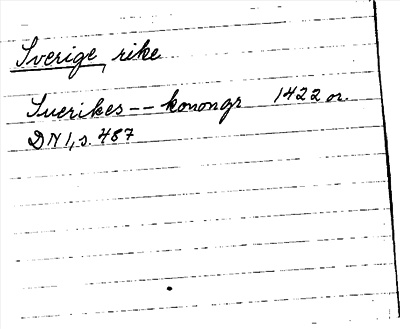 Sverige, rike
Suerikes -- konongr 1422 or.
DN I, s. 487